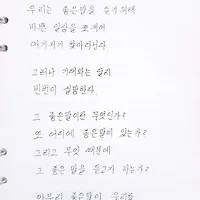 우리는 좋은말을 듣기위해
바쁜 일상을 쪼개어
여기저기 찾아다닌다
그러나 기대와는 달리
번번이 실망한다.
그 좋은말이란 무엇인가?
또 어디에 좋은말이 있는가?
그리고 무엇 때문에
그 좋은 말을 듣고자 하는가?
아무리 좋은말이 우리를